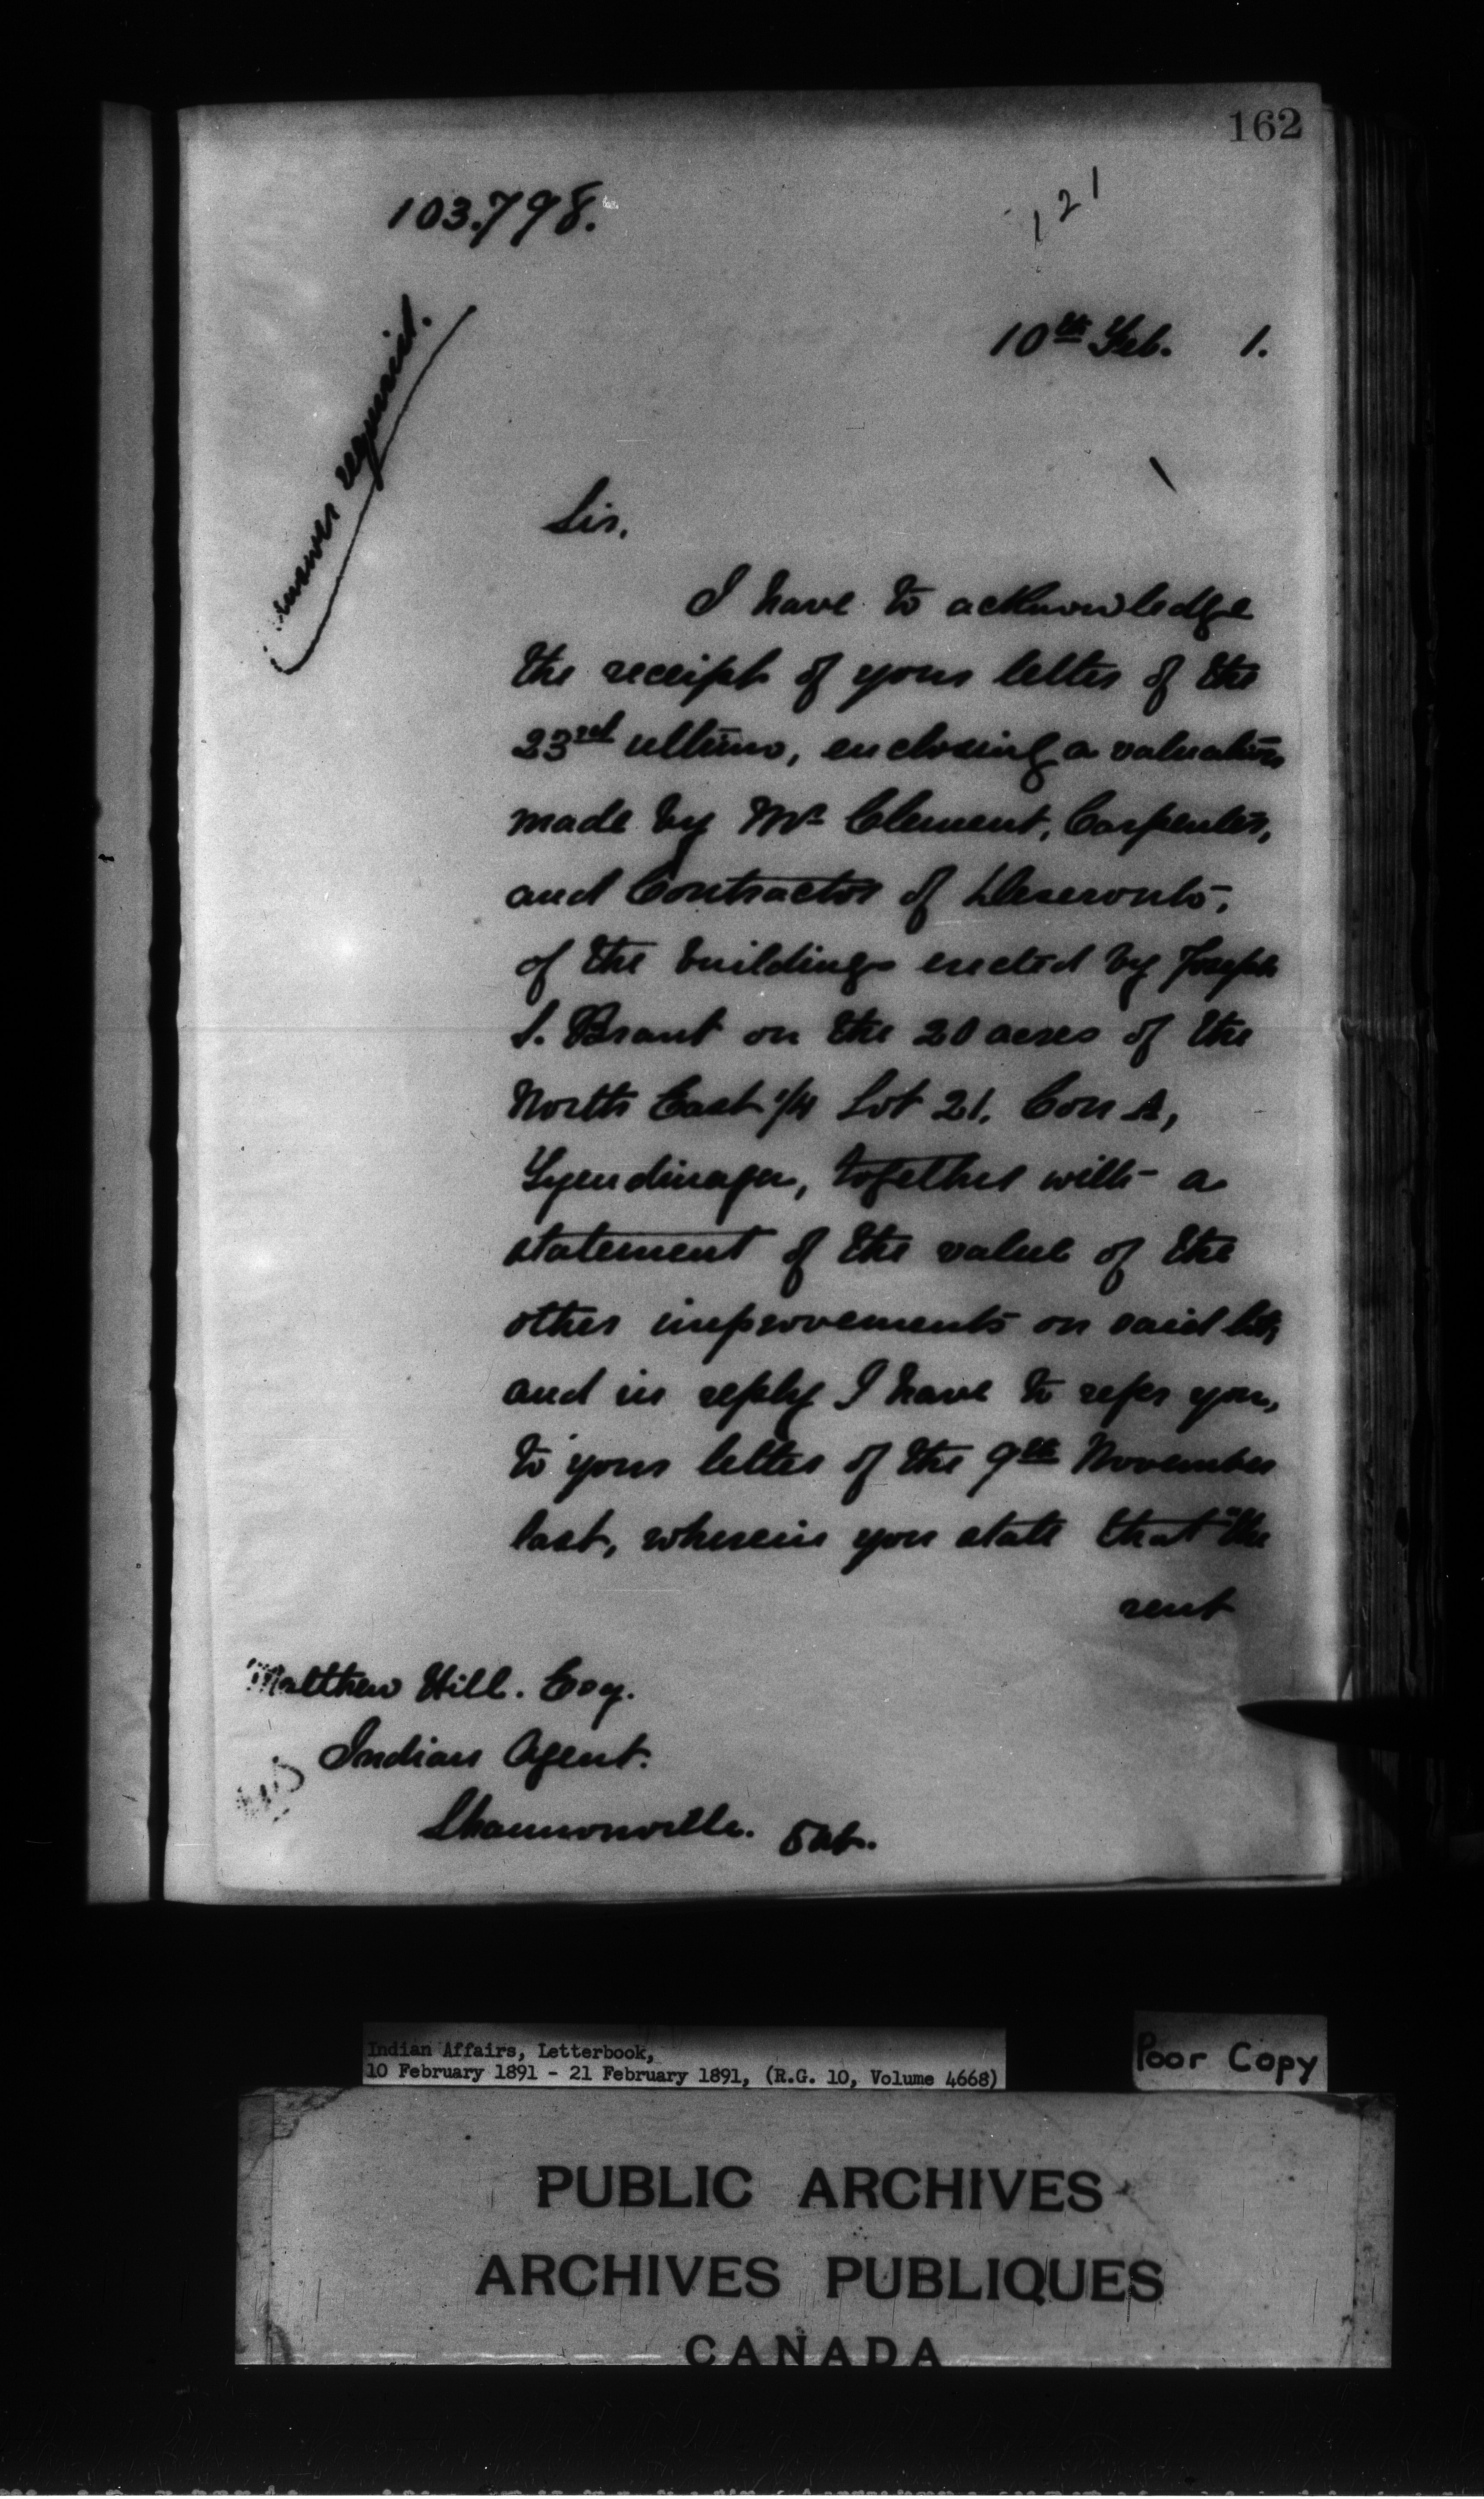 162
103.798.
121
10th Feb. 1.
Answer required.
Sir,
I have to acknowledge
the receipt of your letter of the
23rd ultimo, enclosing a valuation
made by Mr Clement, Carpenter,
and Contractor of Deseronto,
of the buildings erected by Joseph
S. Brant on the 20 acres of the
North East 1/4 Lot 21, Con A,
Tyendinaga, together with a
statement of the value of the
other improvements on said lot,
and in reply I have to refer you,
to your letter of the 9th November
last, wherein you state that "the
rent
Matthew Hill. Esq.
Indian Agent.
Shannonville. Ont.
Indian Affairs, Letterbook,
10 February 1891 - 21 February 1891, (R.G. 10, Volume 4668)
Poor Copy
PUBLIC ARCHIVES
ARCHIVES PUBLIQUES
CANADA